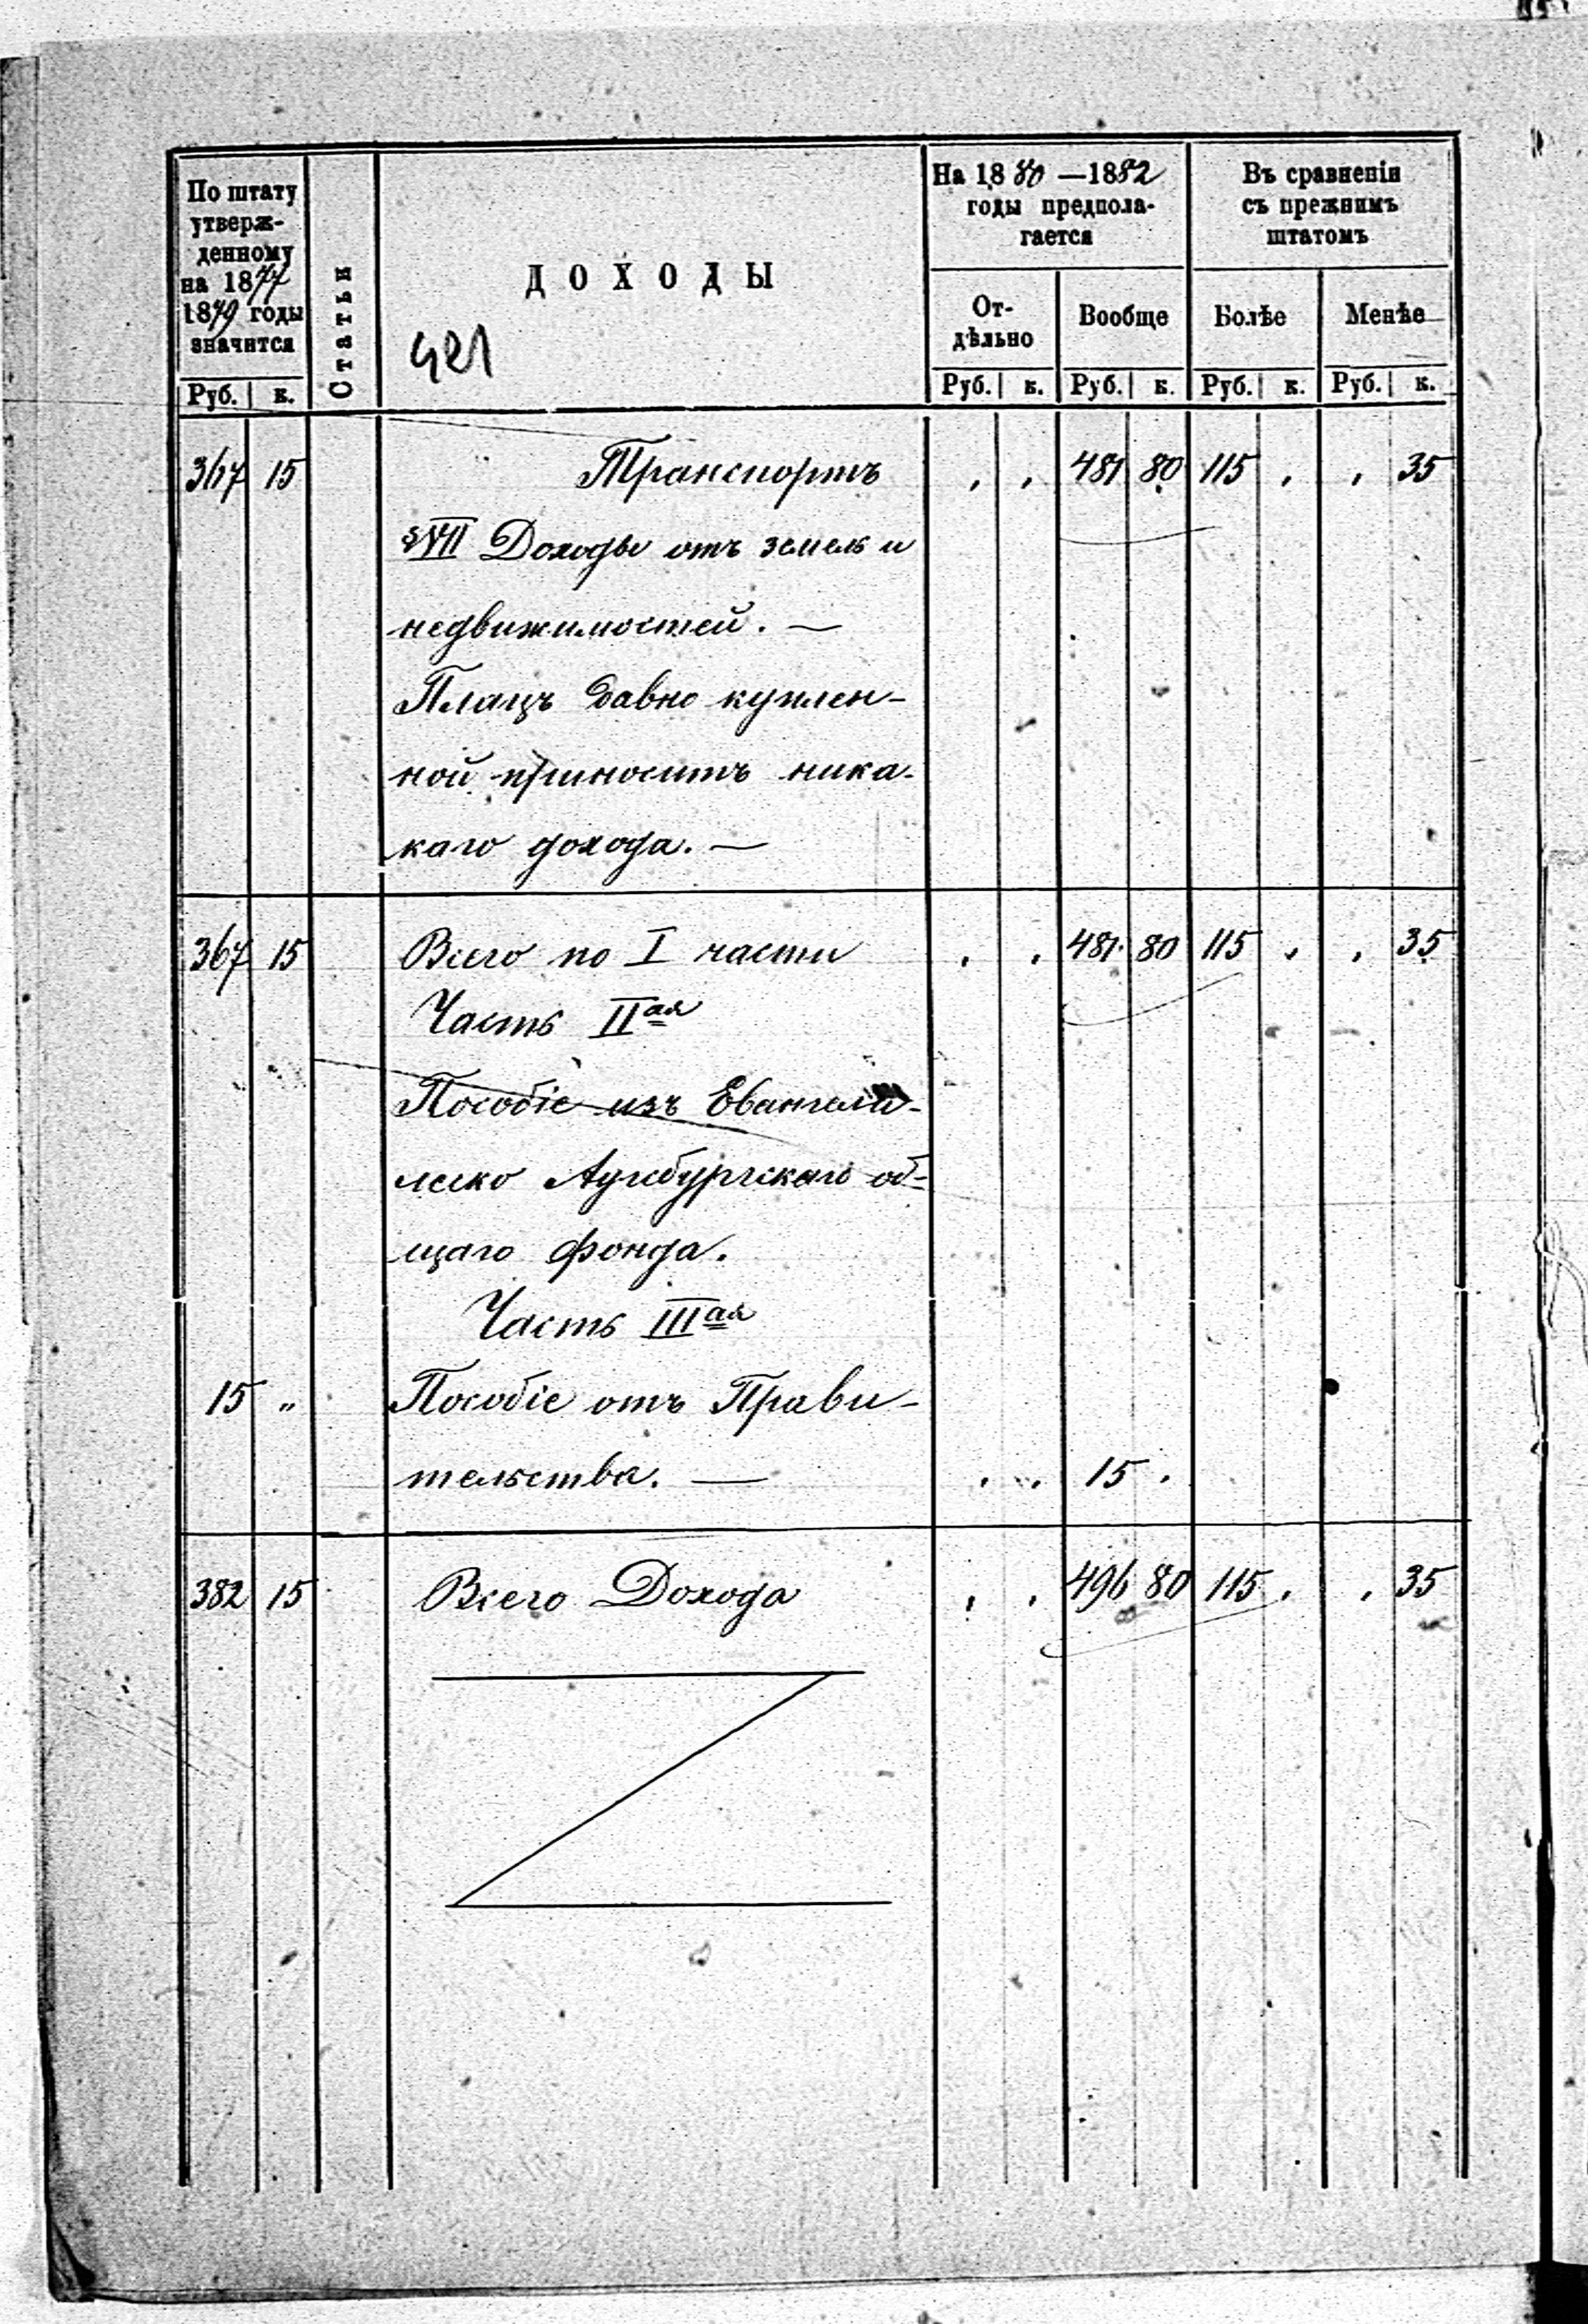 По штату
утверж-
денному
на 1877
1879 годы
значится
Руб. к.
Статьи
ДОХОДЫ
421
На 1880—1882
годы предпола-
гается
От-
дѣльно
Вообще
Руб. к. Руб. к.
Въ сравненіи
съ прежнимъ
штатомъ
Болѣе
Менѣе
Руб. к. Руб. к.
367 15 Транспортъ 481 80 115 35
§VII Доходы отъ земель и
недвижимостей. —
Плацъ давно куплен-
ной приноситъ ника-
каго дохода. —
367 15 Всего по I части 481 80 115 35
Часть IIая
Пособіе изъ Евангели-
ческо Аугсбургскаго об-
щаго фонда.
Часть IIIая
15 „ Пособіе отъ Прави-
тельства. — 15
382 15 Всего Дохода 496 80 115 35